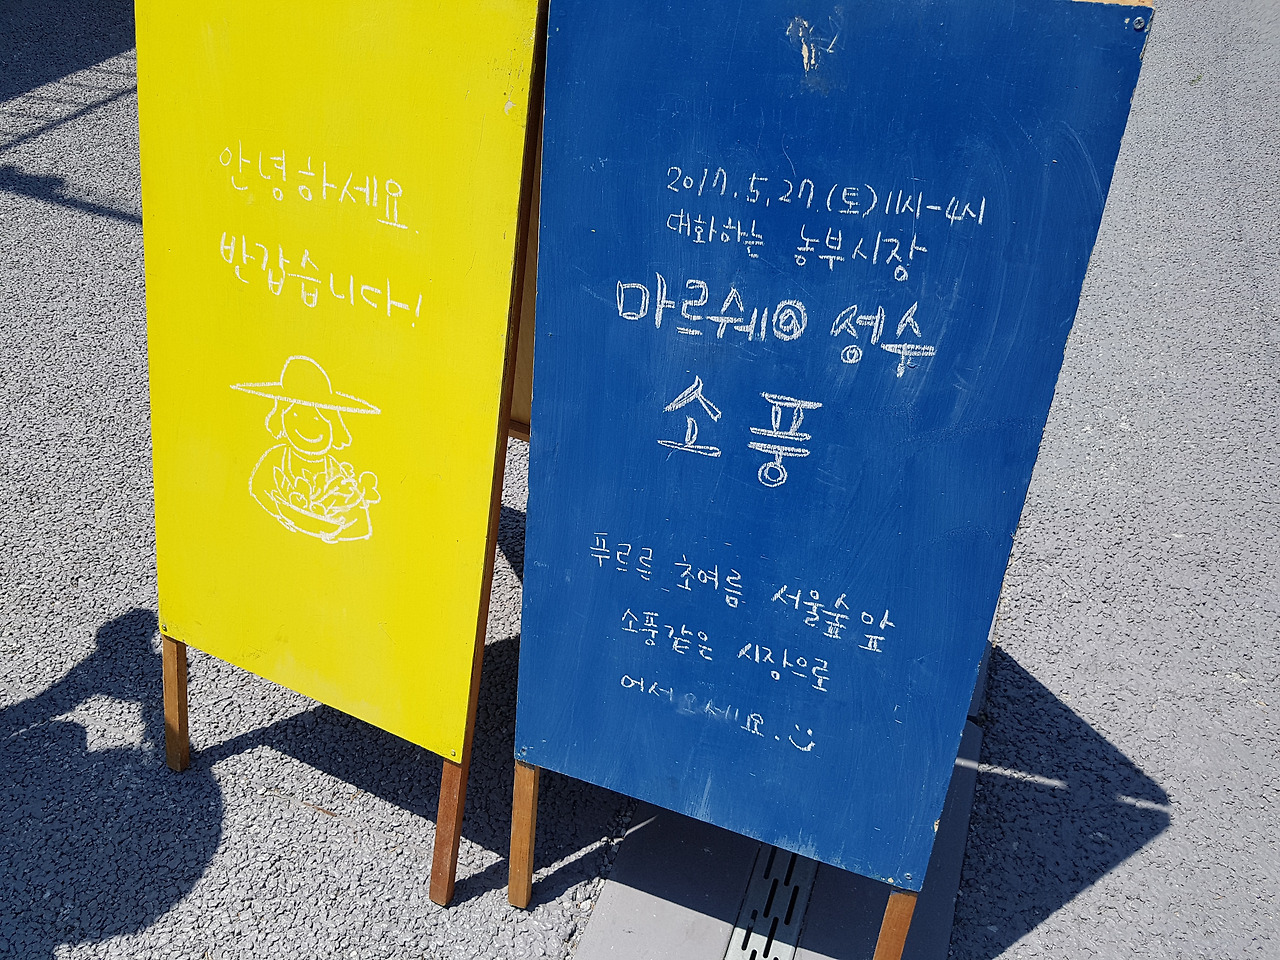 안녕하세요.
반갑습니다!
2017.5.27.(토) 11시-4시
대화하는 농부시장
마르쉐@ 성수
소풍
푸르른 초여름 서울숲 앞
소풍같은 시장으로
어서오세요. :)